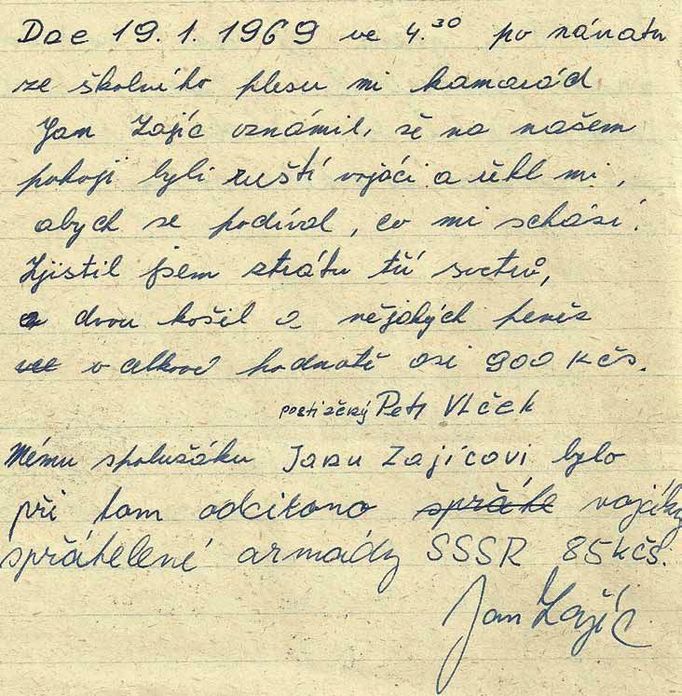 Dne 19. 1. 1969 ve 4.30 po návratu
ze školního plesu mi kamarád
Jan Zajíc oznámil, že na našem
pokoji byli ruští vojáci a řekl mi,
abych se podíval, co mi schází.
Zjistil jsem ztrátu tří svetrů,
a dvou košil a nějakých peněz
v celkové hodnotě asi 900 Kčs.
postižený Petr Vlček
Mému spolužáku Janu Zajícovi bylo
při tom odcizeno spřáte vojáky
spřátelené armády SSSR 85 Kčs.
Jan Zajíc